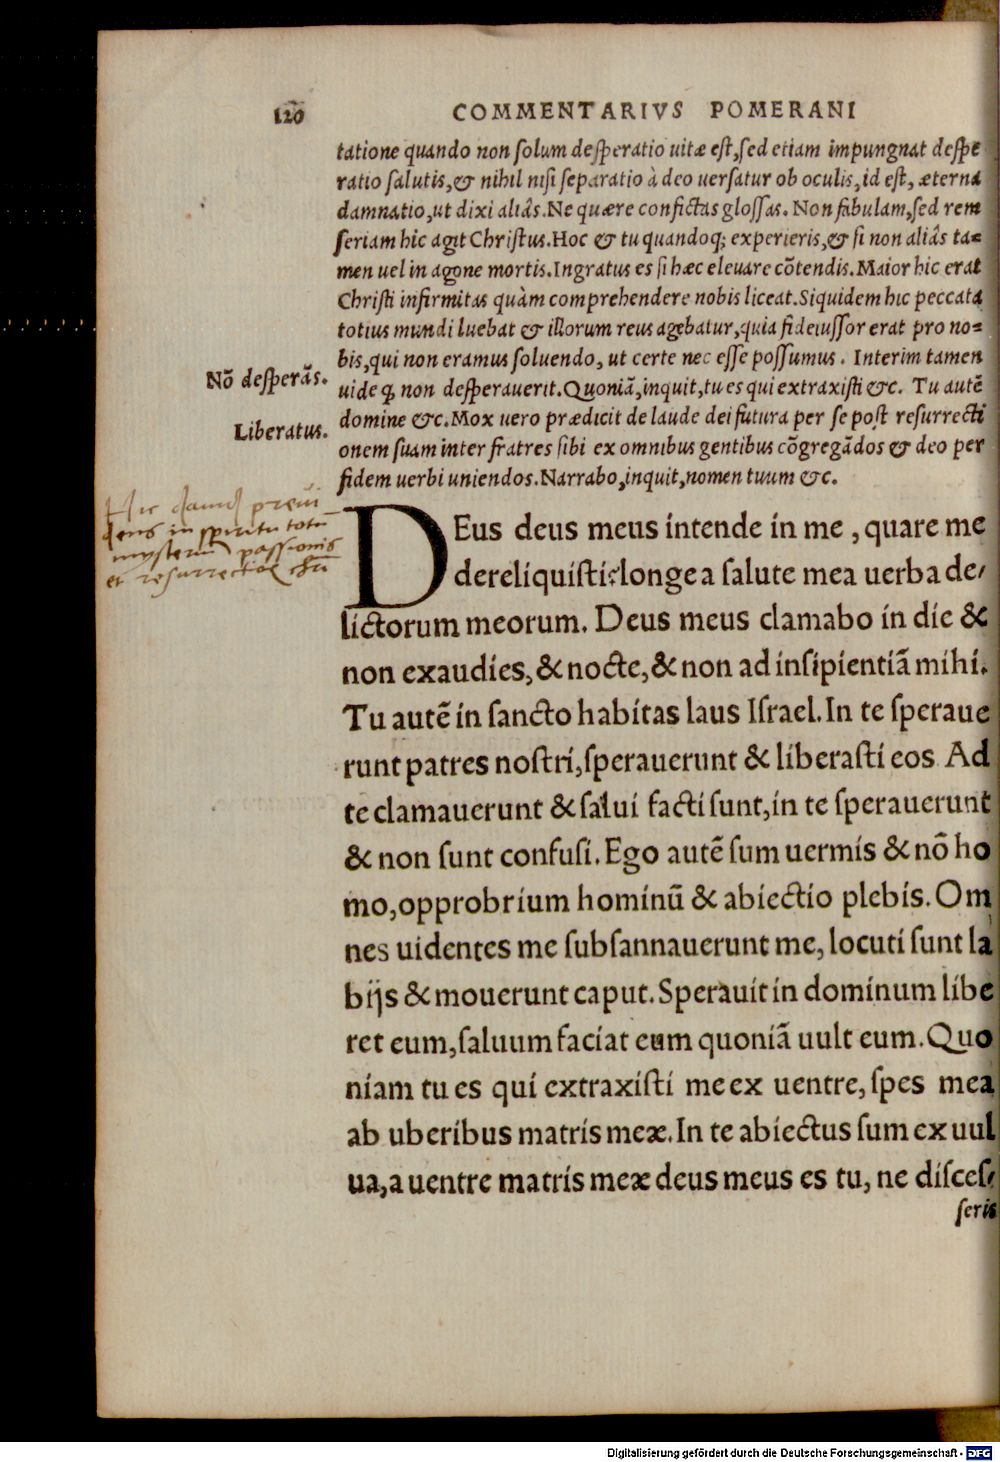 120
COMMENTARIVS POMERANI
tatione quando non ſolum deſperatio uitæ eſt, ſed etiam impungnat deſpe
ratio ſalutis, & nihil niſi ſeparatio à deo uerſatur ob oculis, id eſt, æterna
damnatio, ut dixi aliâs. Ne quære confictas gloſſas. Non fabulam, ſed rem
ſeriam hic agit Chriſtus. Hoc & tu quandoq; experieris, & ſi non aliâs ta=
men uel in agone mortis. Ingratus es ſi hæc eleuare cõtendis. Maior hic erat
Chriſti infirmitas quàm comprehendere nobis liceat. Siquidem hic peccata
totius mundi luebat & illorum reus agebatur, quia fideiuſſor erat pro no=
bis, qui non eramus ſoluendo, ut certe nec eſſe poſſumus. Interim tamen
Nõ deſperãs.
uide ꝙ non deſperauerit. Quoniã, inquit, tu es qui extraxiſti &c. Tu autẽ
domine &c. Mox uero prædicit de laude dei futura per ſe poſt reſurrecti
Liberatus.
onem ſuam inter fratres ſibi ex omnibus gentibus cõgregãdos & deo per
fidem uerbi uniendos. Narrabo, inquit, nomen tuum &c.
Hic dauid preui
dens in ſpiritu totũ
myſteriũ paſſionis
et reſurrectiõis chrĩ
DEus deus meus intende in me, quare me
dereliquiſti: longe a ſalute mea uerba de/
lictorum meorum. Deus meus clamabo in die &
non exaudies, & nocte, & non ad inſipientiã mihi.
Tu autẽ in ſancto habitas laus Iſrael. In te ſperaue
runt patres noſtri, ſperauerunt & liberaſti eos Ad
te clamauerunt & ſalui facti ſunt, in te ſperauerunt
& non ſunt confuſi. Ego autẽ ſum uermis & nõ ho
mo, opprobrium hominũ & abiectio plebis. Om
nes uidentes me ſubſannauerunt me, locuti ſunt la
bijs & mouerunt caput. Sperauit in dominum libe
ret eum, ſaluum faciat eum quoniã uult eum. Quo
niam tu es qui extraxiſti me ex uentre, ſpes mea
ab uberibus matris meæ. In te abiectus ſum ex uul
ua, a uentre matris meæ deus meus es tu, ne diſceſ/
ſeris
Digitalisierung gefördert durch die Deutsche Forschungsgemeinschaft - DFG